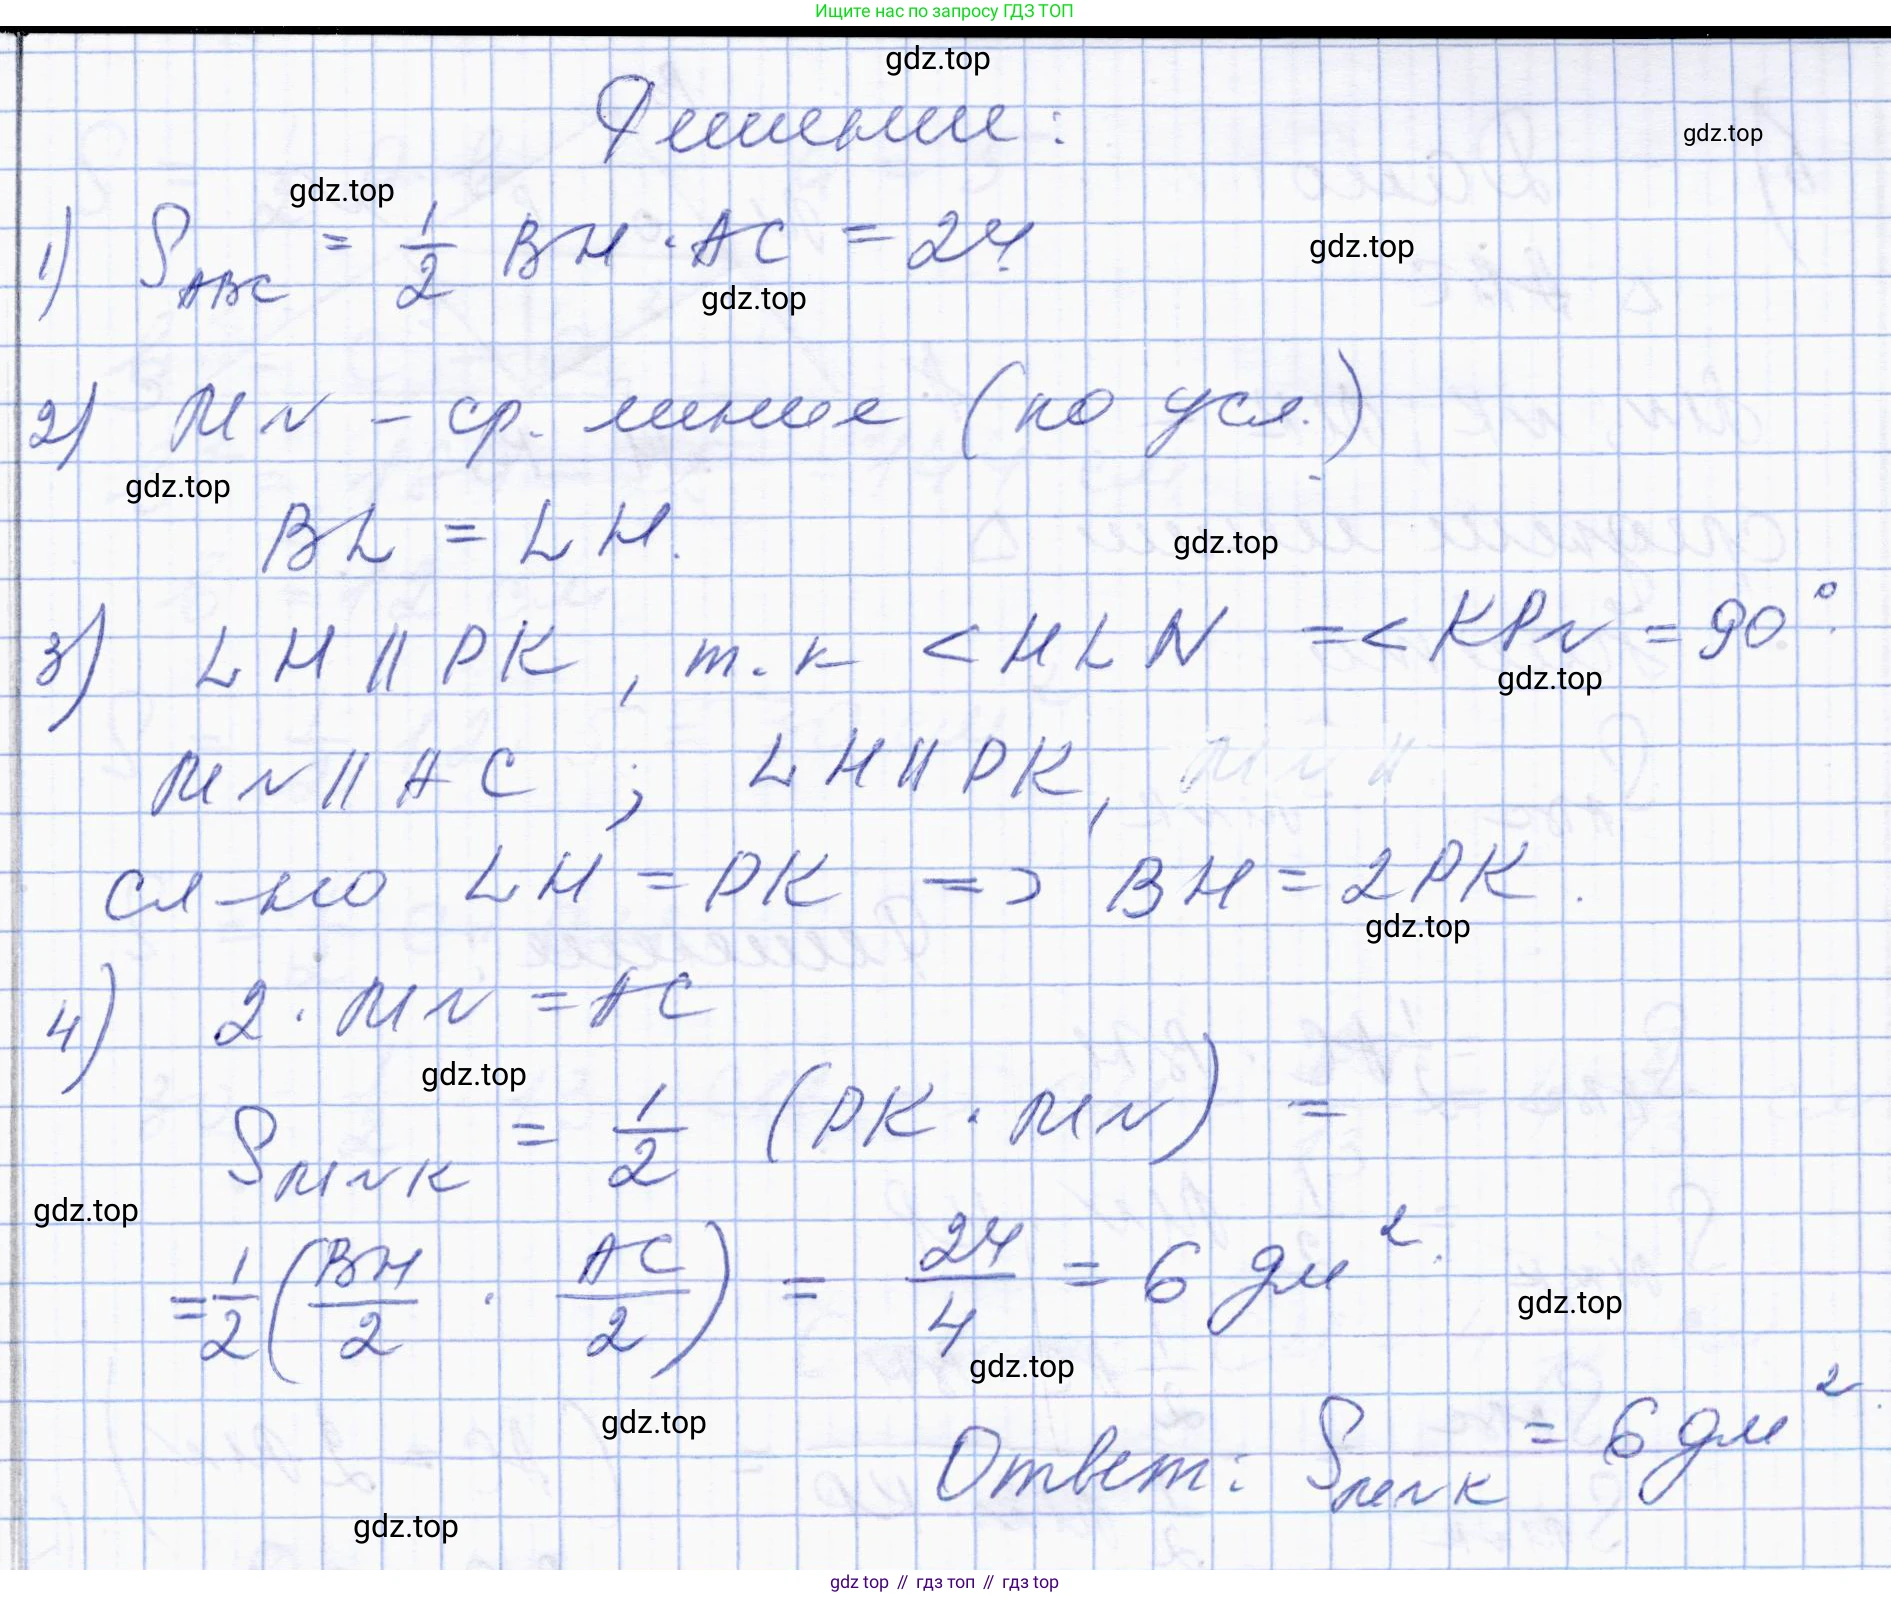 Ищите нас по запросу ГДЗ ТОП
gdz.top
Решение:
gdz.top
gdz.top
1) S ABC = 1/2 BH · AC = 24
gdz.top
gdz.top
2) MN – ср. линия (по усл.)
gdz.top
BL = LH.
gdz.top
3) LH || PK, т.к <HLN = <KPN = 90°.
gdz.top
MN || AC ; LH || PK, MN ||
сл-но LH = PK => BH = 2PK.
gdz.top
4) 2 · MN = AC
gdz.top
S MNK = 1/2 (PK · MN) =
gdz.top
= 1/2 (BH/2 · AC/2) = 24/4 = 6 дм².
gdz.top
gdz.top
gdz.top
Ответ: S MNK = 6 дм².
gdz.top
gdz top // гдз топ // гдз top